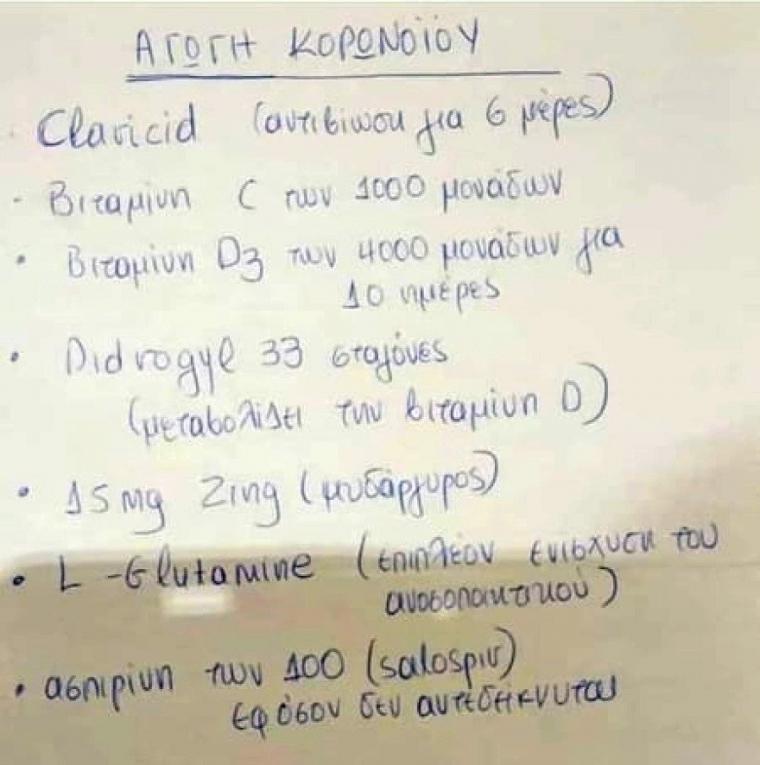 ΑΓΩΓΗ ΚΟΡΩΝΟΪΟΥ
Claricid (αντιβίωση για 6 μέρες)
- Βιταμίνη C των 1000 μονάδων
• Βιταμίνη D3 των 4000 μονάδων για
10 ημέρες
• Didrogyl 33 σταγόνες
(μεταβολίζει την βιταμίνη D)
• 15mg Zing (μυδάργυρος)
• L-Glutamine (επιπλέον ενίσχυση του
ανοσοποιητικού)
• ασπιρίνη των 100 (salospin)
εφόσον δεν αντεδείκνυται